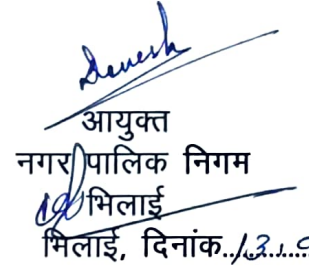 Devesh
आयुक्त
नगर पालिक निगम
भिलाई
भिलाई, दिनांक